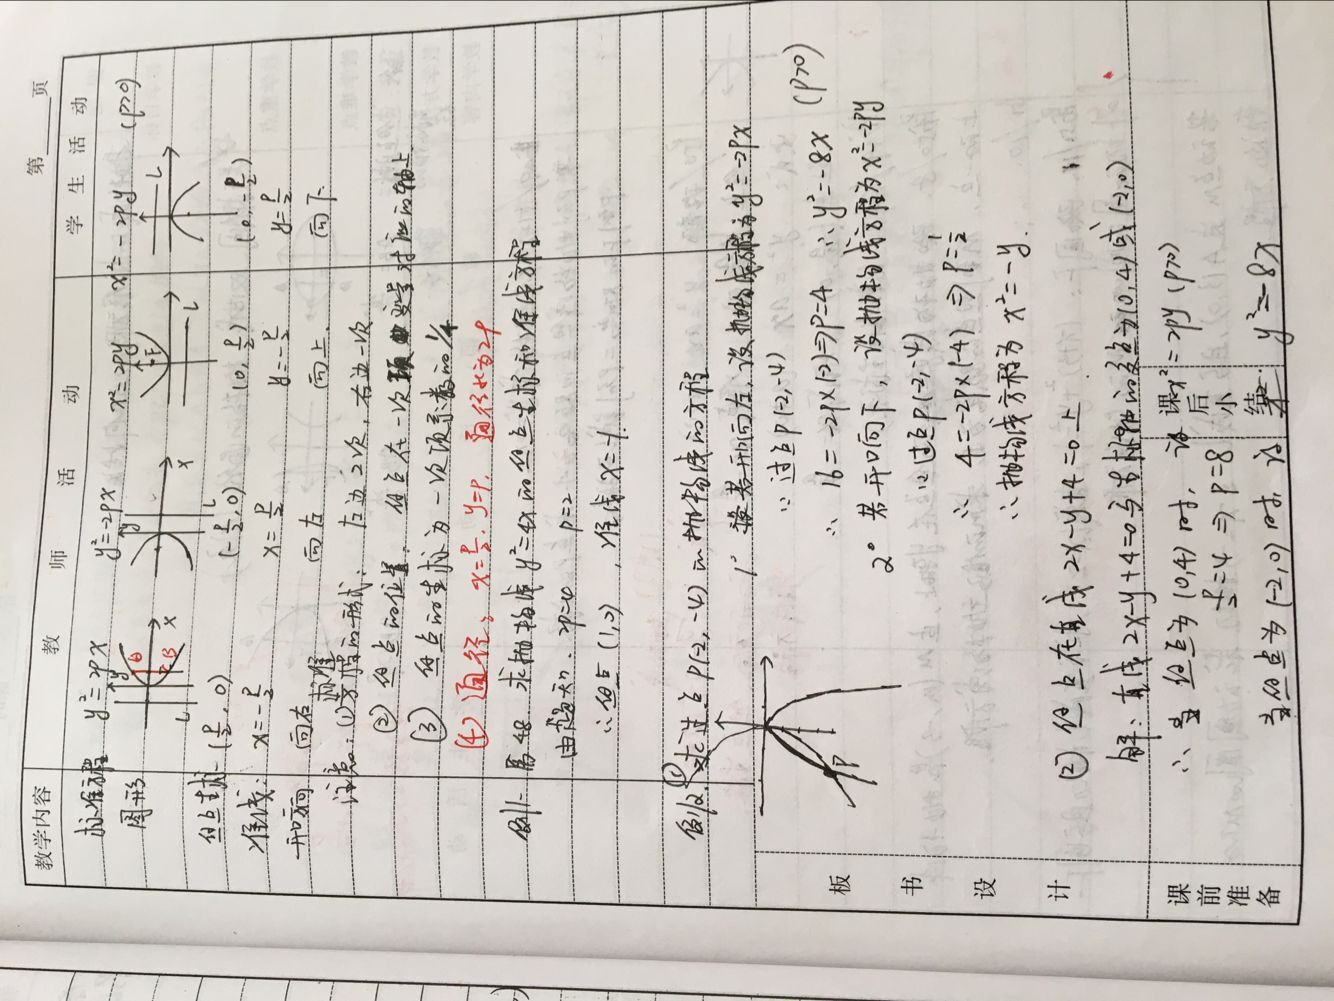 第 页
教学内容 教 师 活 动 学 生 活 动
标准方程 y²=2px y²=-2px x²=2py x²=-2py (p>0)
图形 y A F B x L y x L F L L
焦点坐标 (p/2, 0) (-p/2, 0) (0, p/2) (0, -p/2)
准线: x=-p/2 x=p/2 y=-p/2 y=p/2
开口方向 向右 向左 向上 向下
注意:①标准方程的形式: 左边2次,右边一次
② 焦点的位置: 焦点在一次项变量对应的轴上
③ 焦点的坐标为一次项系数的1/4
④ 通径: x=p/2, y=p, 通径长为2p
例1- 求抛物线y²=4x的焦点坐标和准线方程
由题知: 2p=4 p=2
∴焦点(1,0), 准线x=-1.
例2. ① 求过点P(-2,-4)的抛物线的方程
1° 若开口向左,设抛物线方程为y²=-2px
∵过点P(-2,-4) (p>0)
∴ 16=-2p×(-2)⇒p=4 ∴y²=-8x
2° 若开口向下,设抛物线方程为x²=-2py
∵过点P(-2,-4)
∴ 4=-2p×(-4)⇒p=1/2
∴抛物线方程为x²=-y.
P
② 焦点在直线2x-y+4=0上
解:直线2x-y+4=0与坐标轴的交点为(0,4)或(-2,0)
∴ 当焦点为(0,4)时, 设x²=2py (p>0)
p/2=4⇒p=8
当焦点为(-2,0)时, 设 y²=-8x
板 书 设 计
课前准备
课后小结